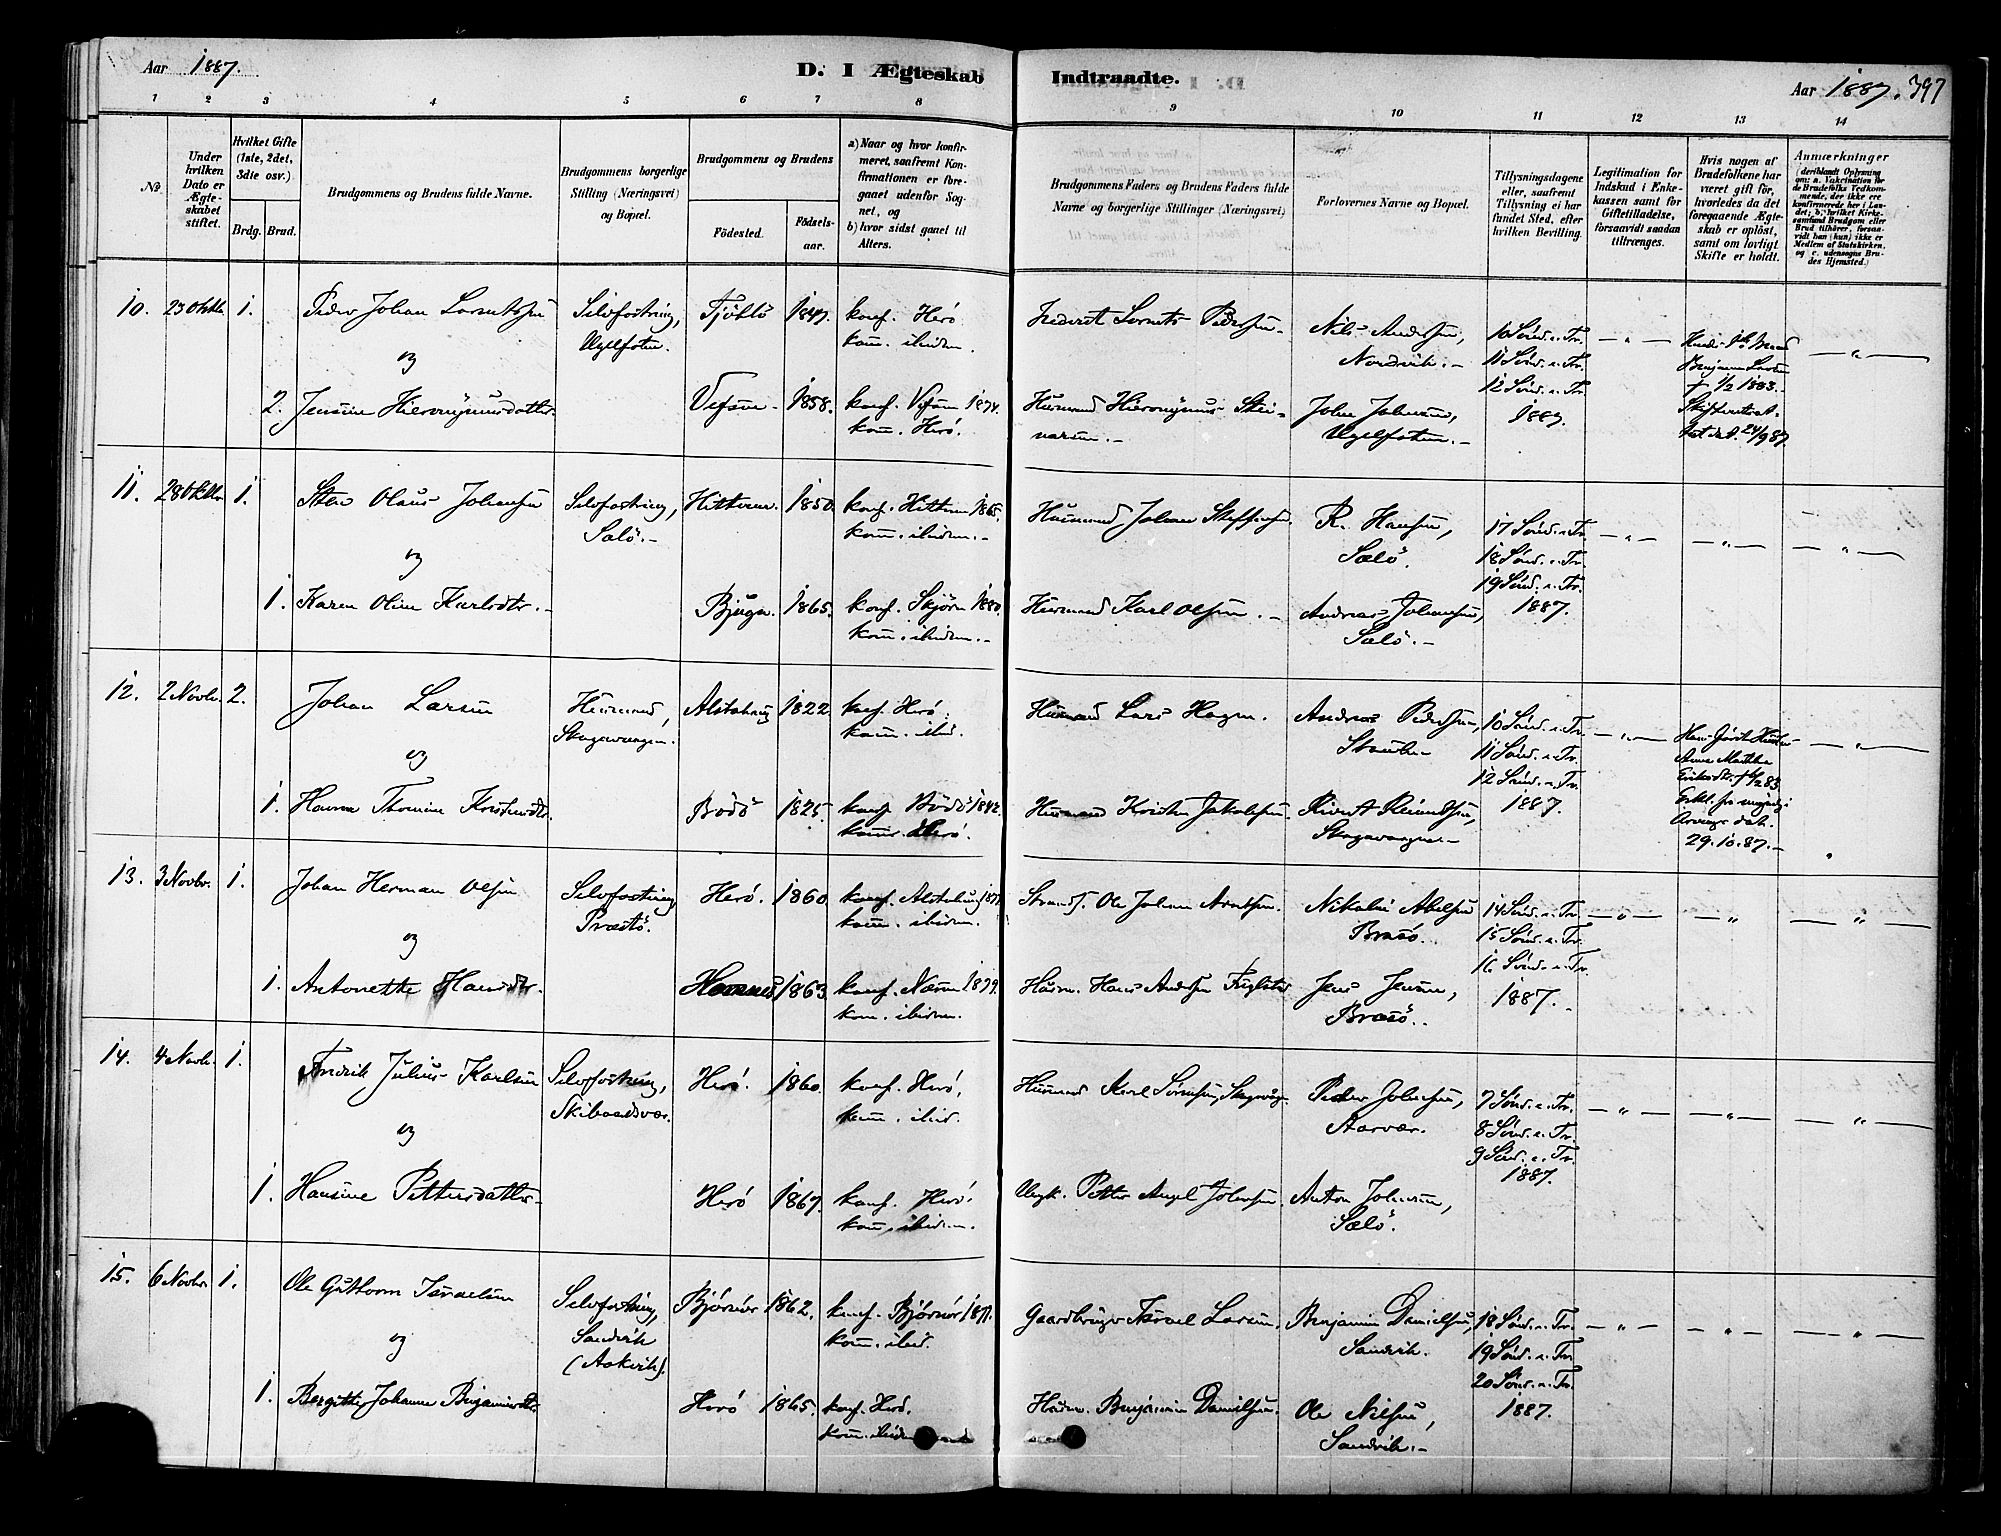 Aar 1887.
D. I Ægteskab Indtraadte.
Aar 1887. 397
1 2 3 4 5 6 7 8 9 10 11 12 13 14
№
Under hvilken Dato er Ægteskabet stiftet.
Hvilket Gifte (1ste, 2det, 3die osv.)
Brdg. Brud.
Brudgommens og Brudens fulde Navne.
Brudgommens borgerlige Stilling (Næringsvei) og Bopæl.
Brudgommens og Brudens
Fødested. Fødsels-aar.
a) Naar og hvor konfirmeret, saafremt Konfirmationen er foregaaet udenfor Sognet, og
b) hvor sidst gaaet til Alters.
Brudgommens Faders og Brudens Faders fulde Navne og borgerlige Stillinger (Næringsvei)
Forlovernes Navne og Bopæl.
Tillysningsdagene eller, saafremt Tillysning ei har fundet Sted, efter hvilken Bevilling.
Legitimation for Indskud i Enkekassen samt for Giftetilladelse, forsaavidt saadan tiltrænges.
Hvis nogen af Brudefolkene har været gift før, hvorledes da det foregaaende Ægteskab er opløst, samt om lovligt Skifte er holdt.
Anmærkninger (deriblandt Oplysning om: a. Vakcination for de Brudefolks Vedkommende, der ikke ere konfirmerede her i Landet; b. hvilket Kirkesamfund Brudgom eller Brud tilhører, forsaavidt han (hun) ikke er Medlem af Statskirken, og c. udensogns Brudes Hjemsted.)
10. 23 Oktbr 1. Peder Johan Lornts­sen Selvfostring, Tjøttø 1847. konf. Herø Frederik Lornts Pedersen Nils Andersen, 10 Sønd. e. Tr.
og Ugelfoten. kom. ibidem. Nordvik. 11 Sønd. e. Tr.
2. Jensine Hieronymusdatter Vefsen 1858. konf. Vefsen 1874. Husmand Hieronymus John Johnsen, 12 Sønd. e. Tr.
kom. Herø. Ugelfoten. 1887.
Benjamin Larsen
† 1/2 1883.
24/9 87.
11. 28 Oktbr 1. Sten Olaus Johansen Selvfostring, Hitteren. 1850. konf. Hitteren 1865. Husmand Johan Steffensen. R. Hansen, 17 Sønd. e. Tr.
og Sælø. kom. ibidem. Sælø. 18 Sønd. e. Tr.
19 Sønd. e. Tr.
1. Karen Oline Karlsdtr. Bjugn. 1865. konf. Skjørn 1880. Husmand Karl Olsen. Andreas Johansen, 1887.
kom. ibidem. Sælø.
12. 2 Novbr. 2. Johan Larsen Husmand, Alstahaug 1822. konf. Herø. Husmand Lars Hagen. Andreas Pedersen, 10 Sønd. e. Tr.
og Skagavaagen. kom. ibid. 11 Sønd. e. Tr.
12 Sønd. e. Tr.
1. Hanna Thomine Kristensdtr. Bodø 1825. konf. Bodø 1842. Husmand Kristen Jakobsen 1887.
kom. Herø. Skagavaagen.
Anne Martha
29.10.87.
13. 3 Novbr. 1. Johan Herman Olsen Selvfostring Herø. 1860 konf. Alstahaug Strands. Ole Johan Arntsen. Nikolai Abelsen 14 Sønd. e. Tr.
og Præstø. kom. ibidem. Brasø. 15 Sønd. e. Tr.
16 Sønd. e. Tr.
1. Antonette Hansdtr. Hemnes 1863 konf. Næsne 1879. Husm. Hans Andersen Jens Jensen, 1887.
kom. ibidem. Brasø.
14. 4 Novbr. 1. Fredrik Julius Karlsen Selvfostring, Herø. 1860. konf. Herø, Husmand Karl Sørensen, Skagavaag. Peder Johnsen, 7 Sønd. e. Tr.
og Skibaadsvær. kom. ibid. Aarvær. 8 Sønd. e. Tr.
9 Sønd. e. Tr.
1. Hansine Pettersdatter Herø 1867. konf. Herø. Ungk. Petter Angel Johnsen Anton Johnsen, 1887.
kom. ibidem. Sælø.
15. 6 Novbr. 1. Ole Guttorm Israelsen Selvfostring, Bjørnør 1862. konf. Bjørnør Gaardbruger Israel Larsen. Benjamin Danielsen, 18 Sønd. e. Tr.
og Sandvik kom. ibid. Sandvik. 19 Sønd. e. Tr.
(Aakvik). 20 Sønd. e. Tr.
1. Bergitte Johanna Benjaminsdtr. Herø 1865. konf. Herø. Husm. Benjamin Danielsen. Ole Nilsen, 1887.
kom. ibidem Sandvik.